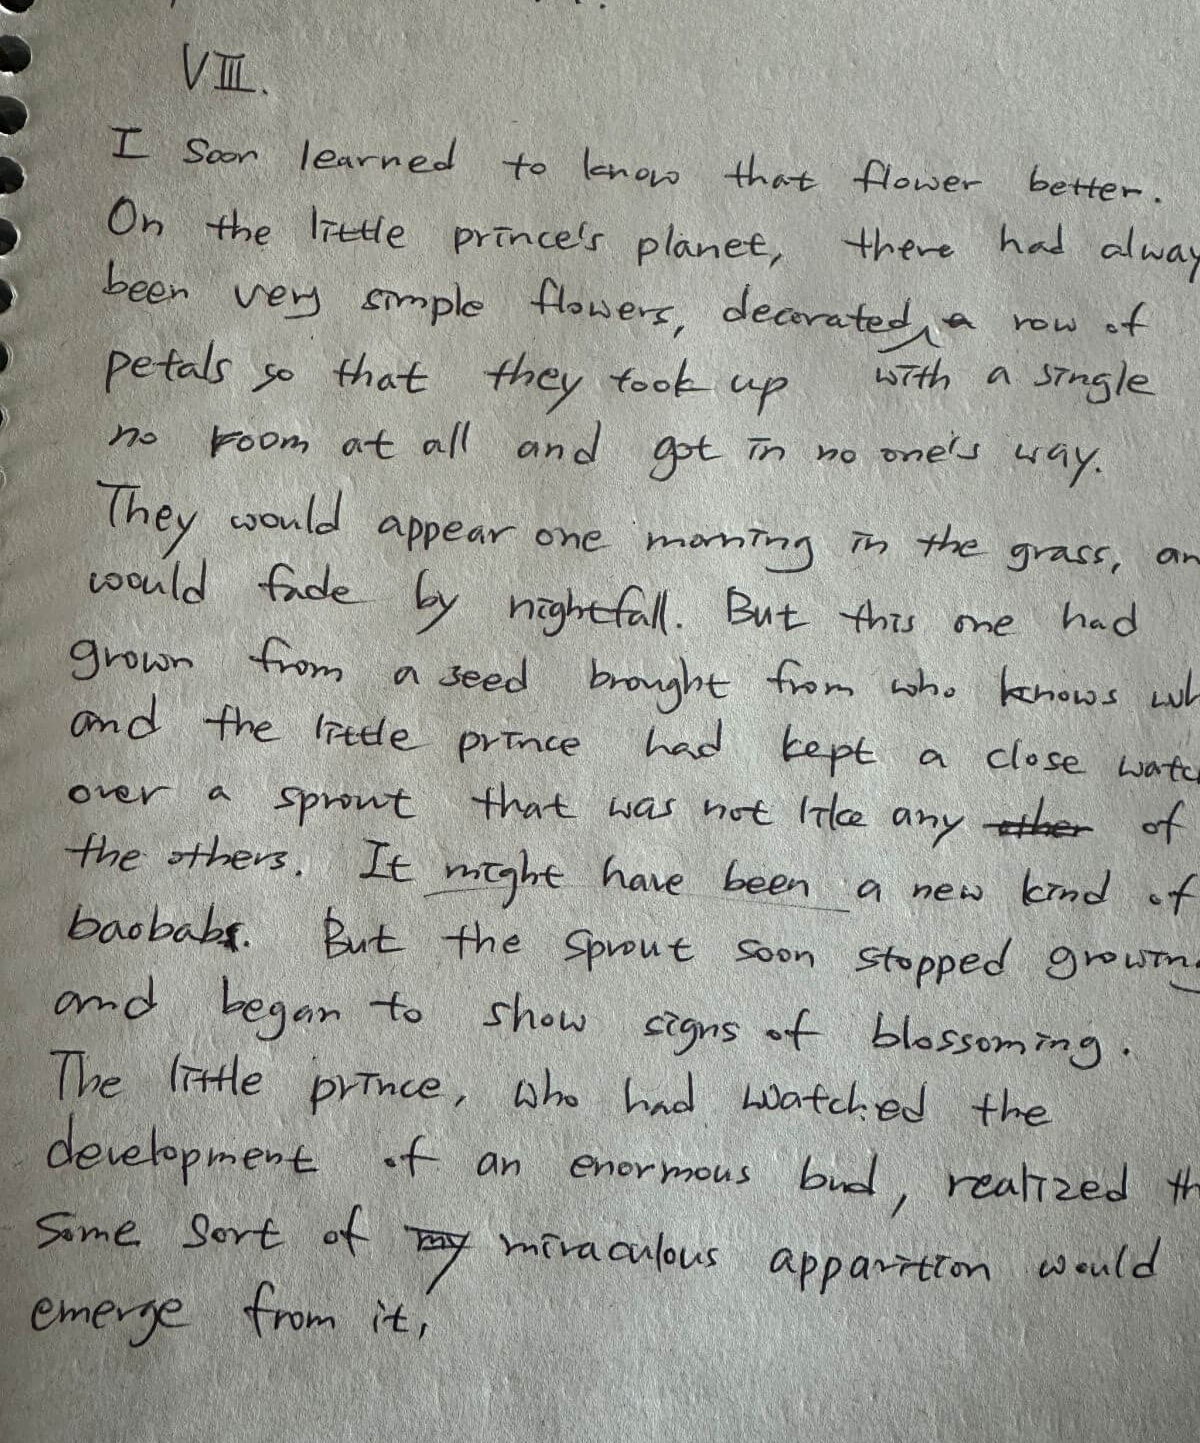 VIII.
I soon learned to know that flower better.
On the little prince's planet, there had alway
been very simple flowers, decorated a row of
petals so that they took up with a single
no room at all and got in no one's way.
They would appear one morning in the grass, an
would fade by nightfall. But this one had
grown from a seed brought from who knows wh
and the little prince had kept a close watc
over a sprout that was not like any other of
the others. It might have been a new kind of
baobabs. But the sprout soon stopped growing
and began to show signs of blossoming.
The little prince, who had watched the
development of an enormous bud, realized th
some sort of my miraculous apparition would
emerge from it,